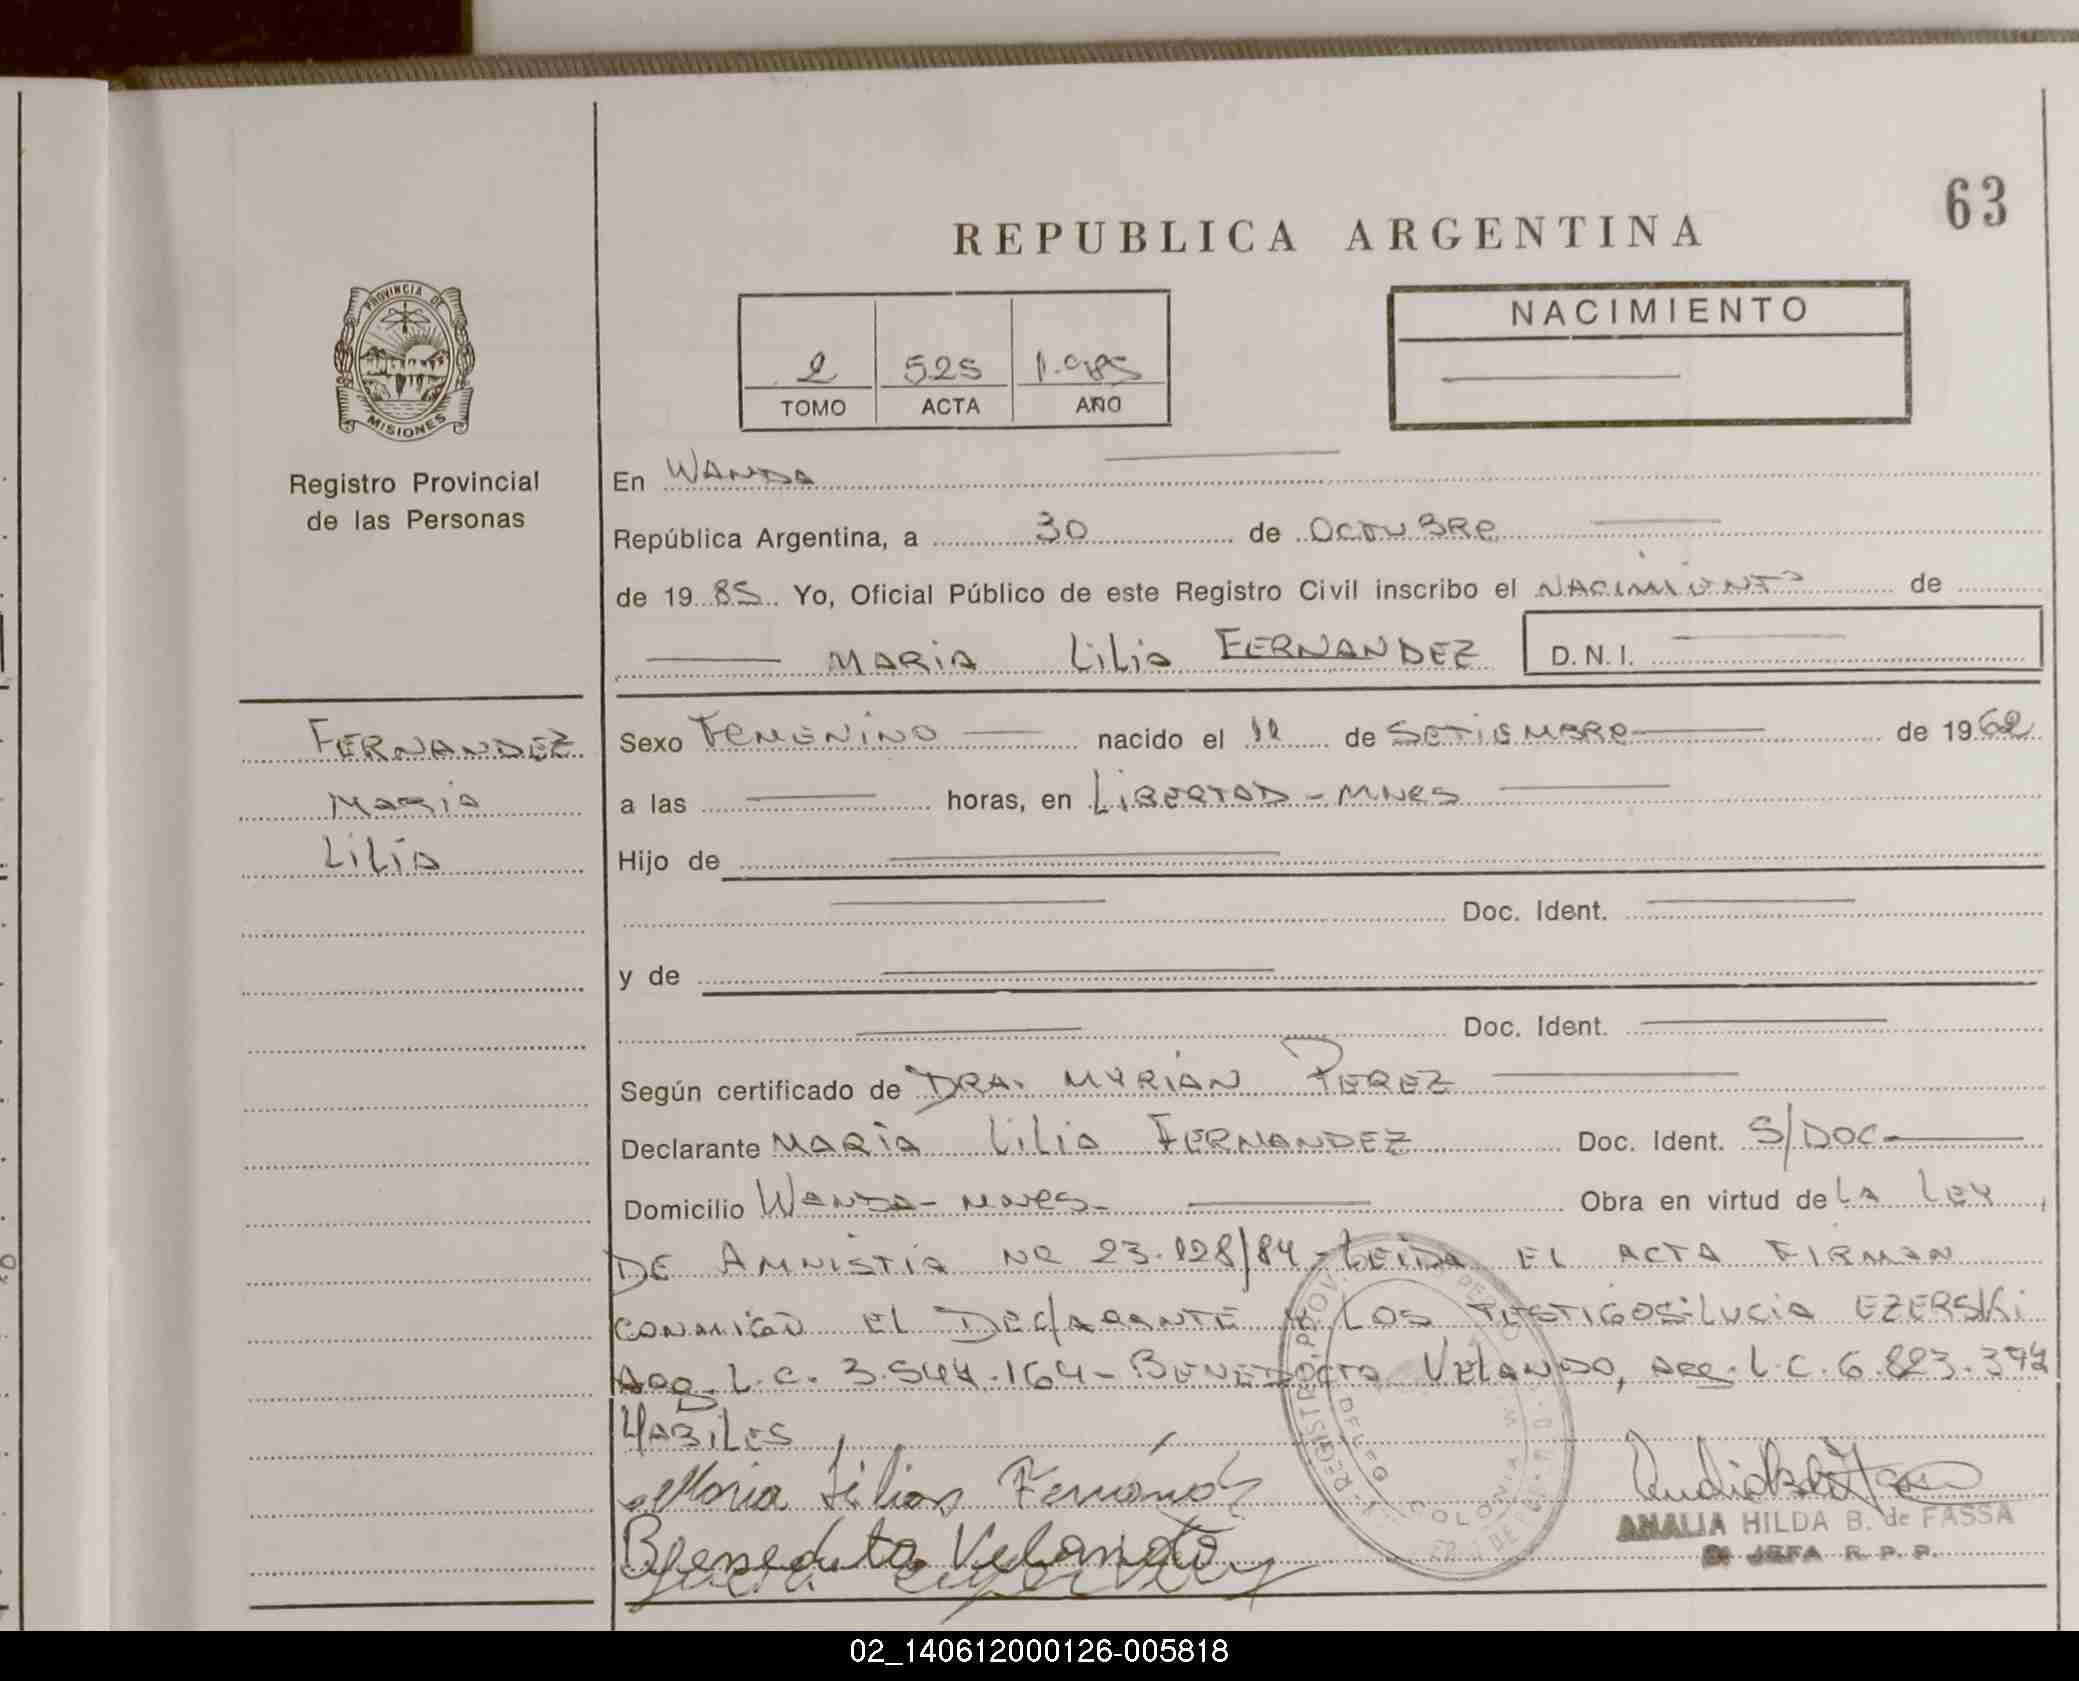 63
REPUBLICA ARGENTINA
PROVINCIA DE
MISIONES
Registro Provincial
de las Personas
2 525 1.985
TOMO ACTA AÑO
NACIMIENTO
En WANDA
República Argentina, a 30 de OCTUBRE
de 1985. Yo, Oficial Público de este Registro Civil inscribo el NACIMIENTO de
MARIA LILIA FERNANDEZ D. N. I.
FERNANDEZ
MARIA
LILIA
Sexo FEMENINO nacido el 12 de SETIEMBRE de 1962
a las horas, en LIBERTAD - MNES
Hijo de
Doc. Ident.
y de
Doc. Ident.
Según certificado de DRA. MYRIAN PEREZ
Declarante MARIA LILIA FERNANDEZ Doc. Ident. S/DOC
Domicilio WANDA - MNES - Obra en virtud de LA LEY
DE AMNISTIA NR 23.128/84 - LEIDA EL ACTA FIRMAN
CONMIGO EL DECLARANTE Y LOS TESTIGOS: LUCIA EZERSKI
ARG. L.C. 3.544.164 - BENEDICTA VELANDO, ARG. L.C. 6.823.392
HABILES
Maria Lilian
Benedita
ANALIA HILDA B. de FASSA
JEFA R. P. P.
COLONIA W
02_140612000126-005818